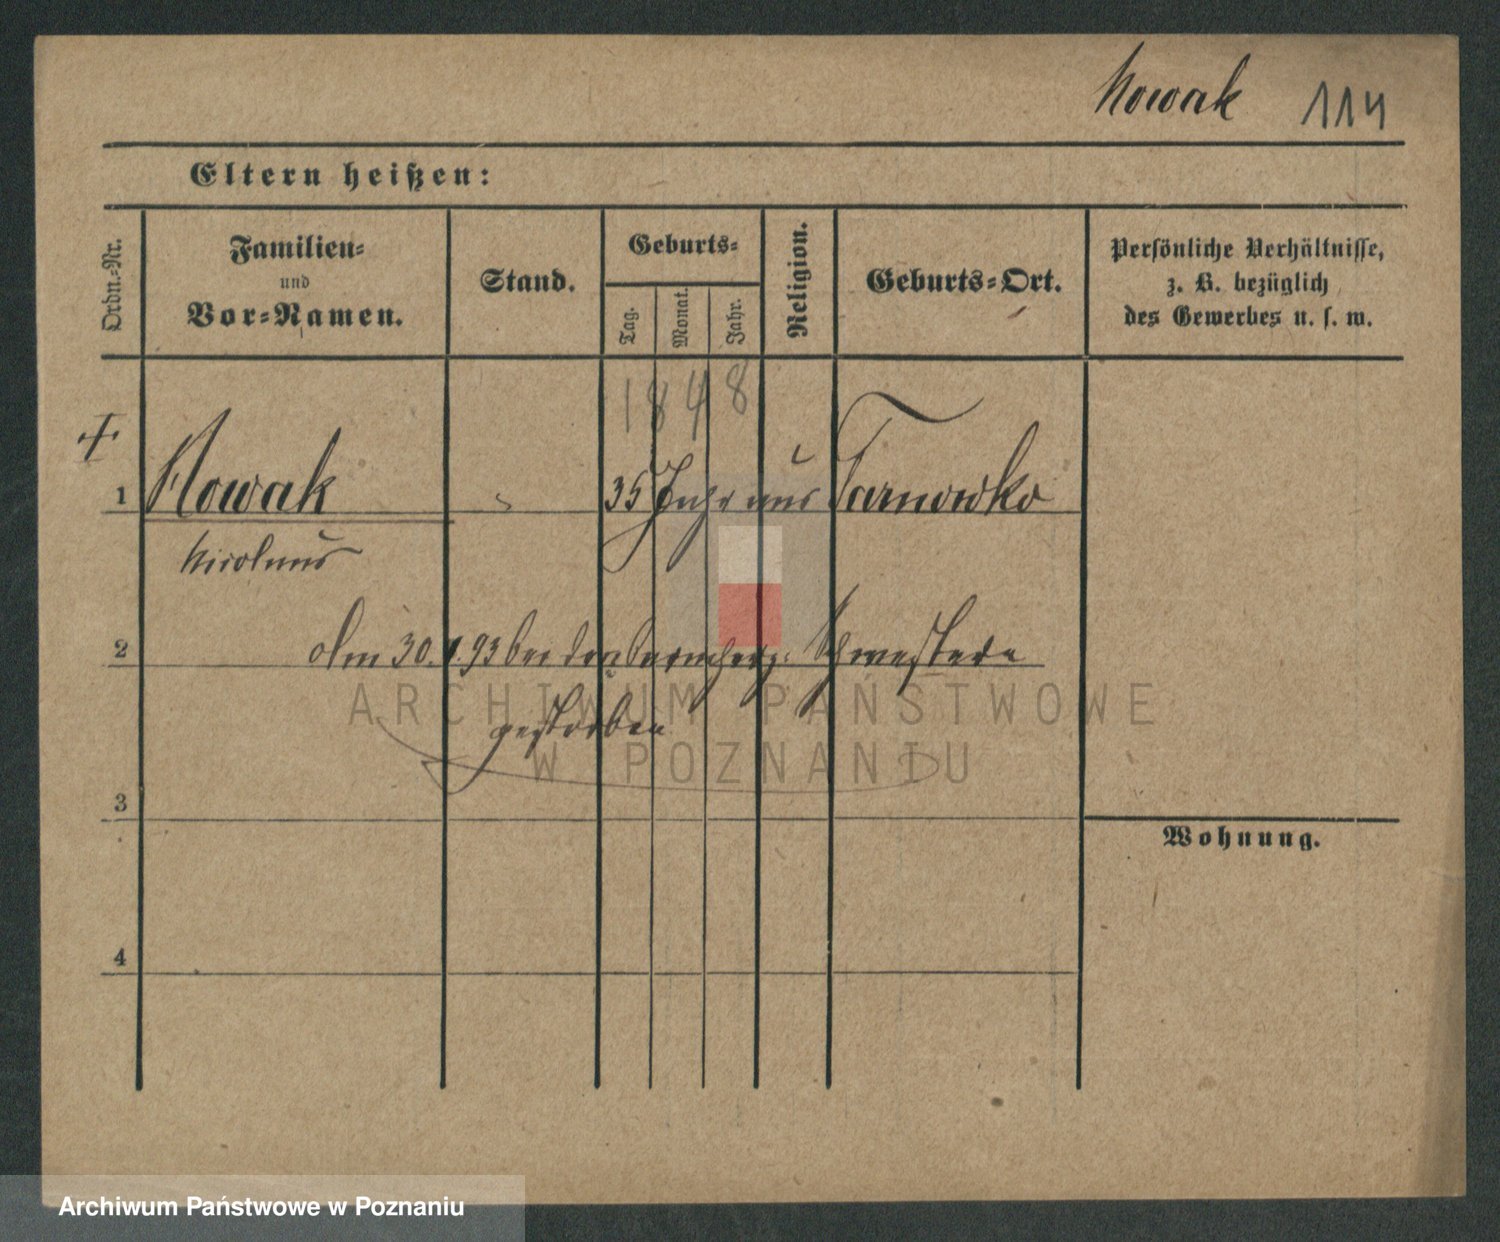 Nowak 114
Eltern heißen:
Ordn.-Nr.
Familien-
und
Vor-Namen.
Stand.
Geburts-
Tag.
Monat.
Jahr.
Religion.
Geburts-Ort.
Persönliche Verhältnisse,
z. B. bezüglich
des Gewerbes u. s. w.
1848
1 Nowak 35 Jahr aus Tarnowko
Nicolaus
2 Am 30. 93 bei den barmherz. Schwestern
gestorben
3
Wohnung.
4
ARCHIWUM PAŃSTWOWE
W POZNANIU
Archiwum Państwowe w Poznaniu